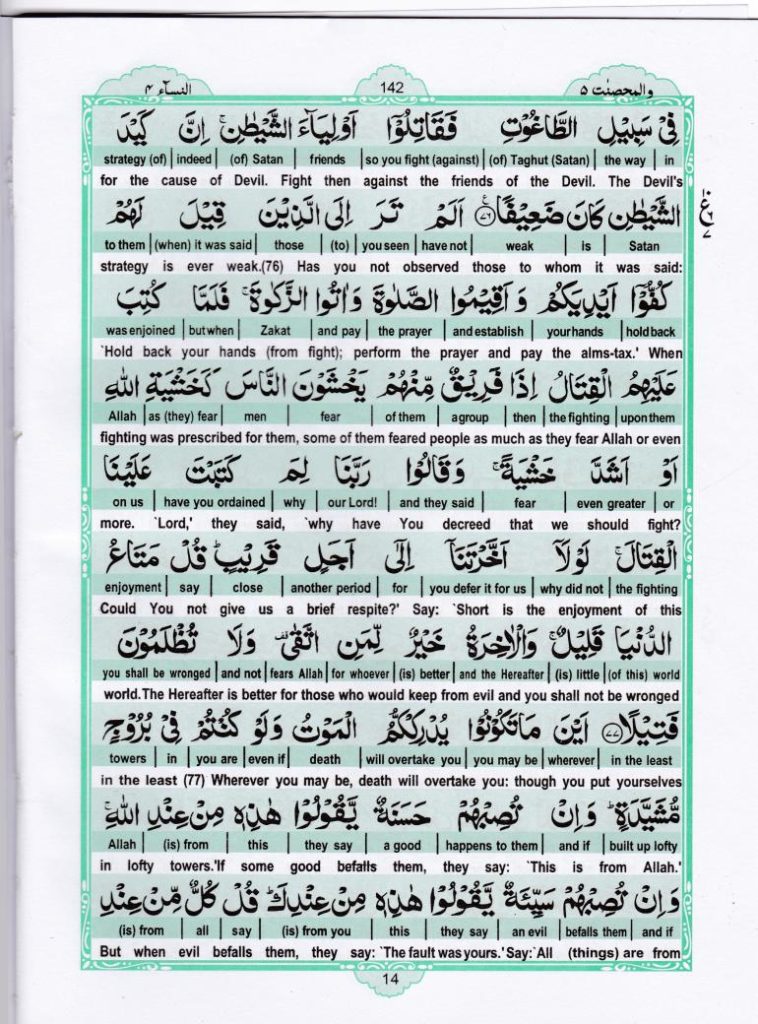 والمحصنٰت ٥ 142 النسآء ٤
فِىْ سَبِيْلِ الطَّاغُوْتِ فَقَاتِلُوْٓا اَوْلِيَآءَ الشَّيْطٰنِ ۚ اِنَّ كَيْدَ
strategy (of) | indeed | (of) Satan | friends | so you fight (against) | (of) Taghut (Satan) | the way | in
for the cause of Devil. Fight then against the friends of the Devil. The Devil's
الشَّيْطٰنِ كَانَ ضَعِيْفًا ﴿٧٦﴾ اَلَمْ تَرَ اِلَى الَّذِيْنَ قِيْلَ لَهُمْ
to them | (when) it was said | those | (to) | you seen | have not | weak | is | Satan
strategy is ever weak.(76) Has you not observed those to whom it was said:
كُفُّوْٓا اَيْدِيَكُمْ وَاَقِيْمُوا الصَّلٰوةَ وَاٰتُوا الزَّكٰوةَ ۚ فَلَمَّا كُتِبَ
was enjoined | but when | Zakat | and pay | the prayer | and establish | your hands | hold back
`Hold back your hands (from fight); perform the prayer and pay the alms-tax.' When
عَلَيْهِمُ الْقِتَالُ اِذَا فَرِيْقٌ مِّنْهُمْ يَخْشَوْنَ النَّاسَ كَخَشْيَةِ اللّٰهِ
Allah | as (they) fear | men | fear | of them | a group | then | the fighting | upon them
fighting was prescribed for them, some of them feared people as much as they fear Allah or even
اَوْ اَشَدَّ خَشْيَةً ۚ وَقَالُوْا رَبَّنَا لِمَ كَتَبْتَ عَلَيْنَا
on us | have you ordained | why | our Lord! | and they said | fear | even greater | or
more. `Lord,' they said, `why have You decreed that we should fight?
الْقِتَالَ ۚ لَوْلَآ اَخَّرْتَنَآ اِلٰٓى اَجَلٍ قَرِيْبٍ ؕ قُلْ مَتَاعُ
enjoyment | say | close | another period | for | you defer it for us | why did not | the fighting
Could You not give us a brief respite?' Say: `Short is the enjoyment of this
الدُّنْيَا قَلِيْلٌ ۚ وَالْاٰخِرَةُ خَيْرٌ لِّمَنِ اتَّقٰى ۗ وَلَا تُظْلَمُوْنَ
you shall be wronged | and not | fears Allah | for whoever | (is) better | and the Hereafter | (is) little | (of this) world
world.The Hereafter is better for those who would keep from evil and you shall not be wronged
فَتِيْلًا ﴿٧٧﴾ اَيْنَ مَا تَكُوْنُوْا يُدْرِكْكُّمُ الْمَوْتُ وَلَوْ كُنْتُمْ فِىْ بُرُوْجٍ
towers | in | you are | even if | death | will overtake you | you may be | wherever | in the least
in the least (77) Wherever you may be, death will overtake you: though you put yourselves
مُّشَيَّدَةٍ ؕ وَاِنْ تُصِبْهُمْ حَسَنَةٌ يَّقُوْلُوْا هٰذِهٖ مِنْ عِنْدِ اللّٰهِ ۚ
Allah | (is) from | this | they say | a good | happens to them | and if | built up lofty
in lofty towers.'If some good befalls them, they say: `This is from Allah.'
وَاِنْ تُصِبْهُمْ سَيِّئَةٌ يَّقُوْلُوْا هٰذِهٖ مِنْ عِنْدِكَ ؕ قُلْ كُلٌّ مِّنْ عِنْدِ
(is) from | all | say | (is) from you | this | they say | an evil | befalls them | and if
But when evil befalls them, they say: `The fault was yours.' Say:`All (things) are from
14